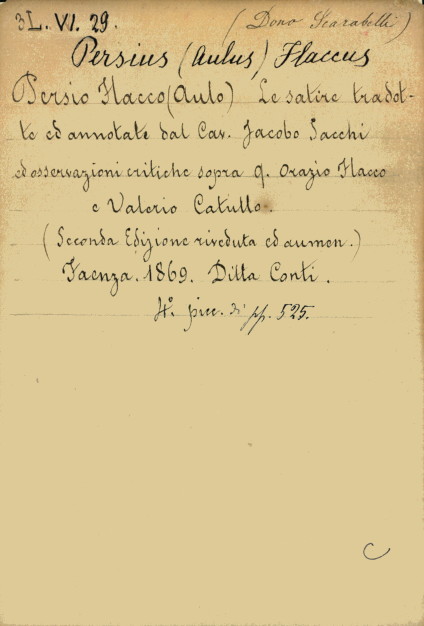 3L. VI. 29. (Dono Scarabelli)
Persius (Aulus) Flaccus
Persio Flacco (Aulo) Le satire tradot-
te ed annotate dal Cav. Jacobo Sacchi
ed osservazioni critiche sopra Q. Orazio Flacco
e Valerio Catullo.
(Seconda Edizione riveduta ed aumen.)
Faenza. 1869. Ditta Conti.
4º. picc. di pp. 525.
C